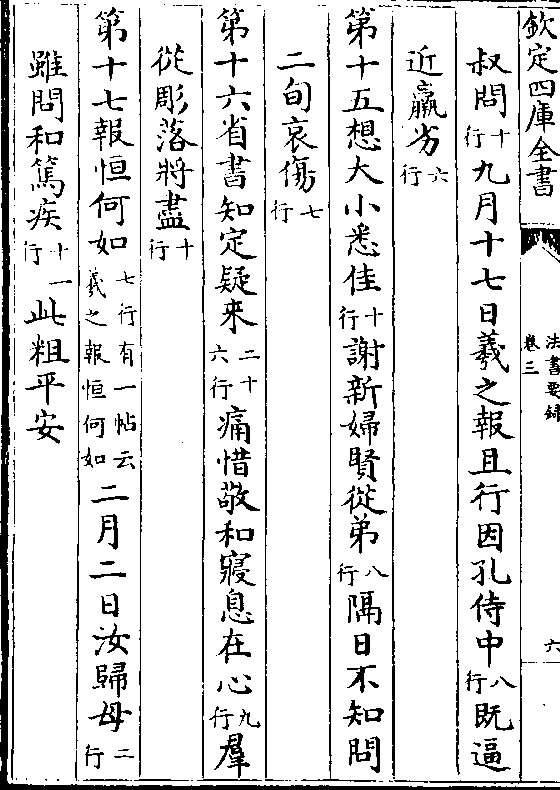 欽定四庫全書
法書要録
卷三
六
叔問十行九月十七日羲之報且行因孔侍中八行既逼
近羸劣六行
第十五想大小悉佳十行謝新婦賢從弟八行隔日不知問
二旬哀傷七行
第十六省書知定疑来二十六行痛惜敬和寢息在心九行羣
從彫落將盡十行
第十七報恒何如七行有一帖云羲之報恒何如二月二日汝歸母二行
雖問和篤疾十一行此粗平安